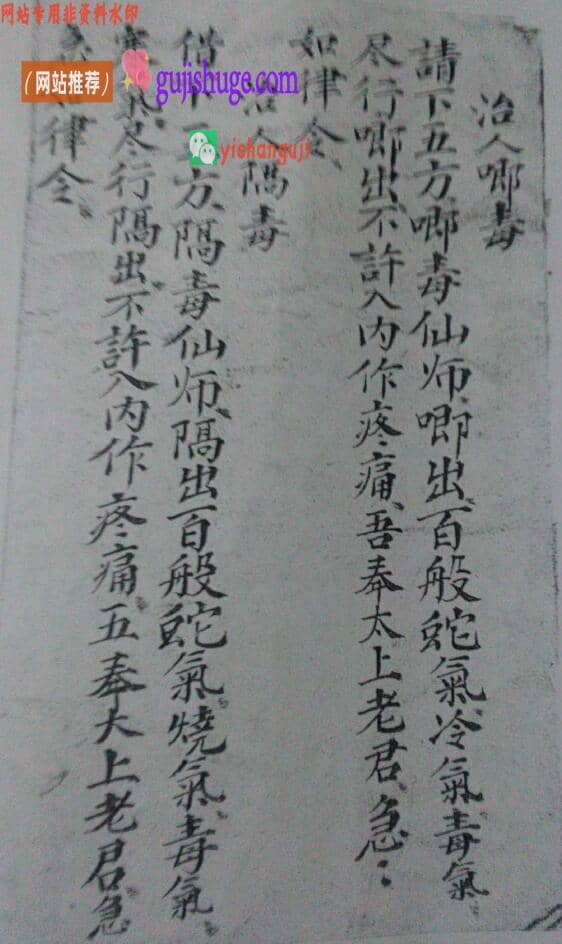 网站专用非资料水印
（网站推荐）
gujishuge.com
yishanguji
冶人唧毒
請下五方唧毒仙师唧出百般蛇氣冷氣毒氣
尽行唧出不許入内作疼痛吾奉太上老君急:
如律令
人隔毒
借下方隔毒仙师隔出百般蛇氣燒氣毒氣
氣尽行隔出不許入内作疼痛五奉大上老君急
律令